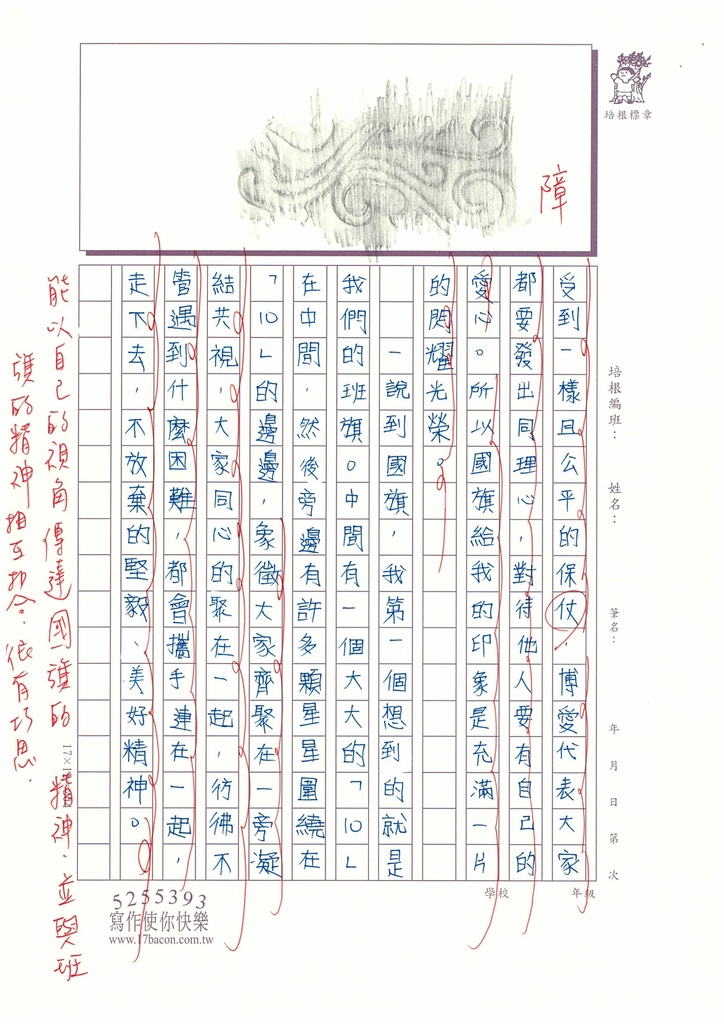 培根標章
障
受到一樣且公平的保仗，博愛代表大家
都要發出同理心，對待他人要有自己的
愛心。所以國旗給我的印象是充滿一片
的閃耀光榮。
一說到國旗，我第一個想到的就是
我們的班旗。中間有一個大大的「10」
在中間，然後旁邊有許多顆星星圍繞在
「10」的邊邊，象徵大家齊聚在一旁凝
結共視，大家同心的聚在一起，彷彿不
管遇到什麼困難，都會攜手連在一起，
走下去，不放棄的堅毅、美好精神。
能以自己的視角傳達國旗的精神，並與班
旗的精神相互扣合，很有巧思。
培根編班：
姓名：
筆名：
年 月 日 第 次
學校 年級
17×1
5255393
寫作使你快樂
www.17bacon.com.tw